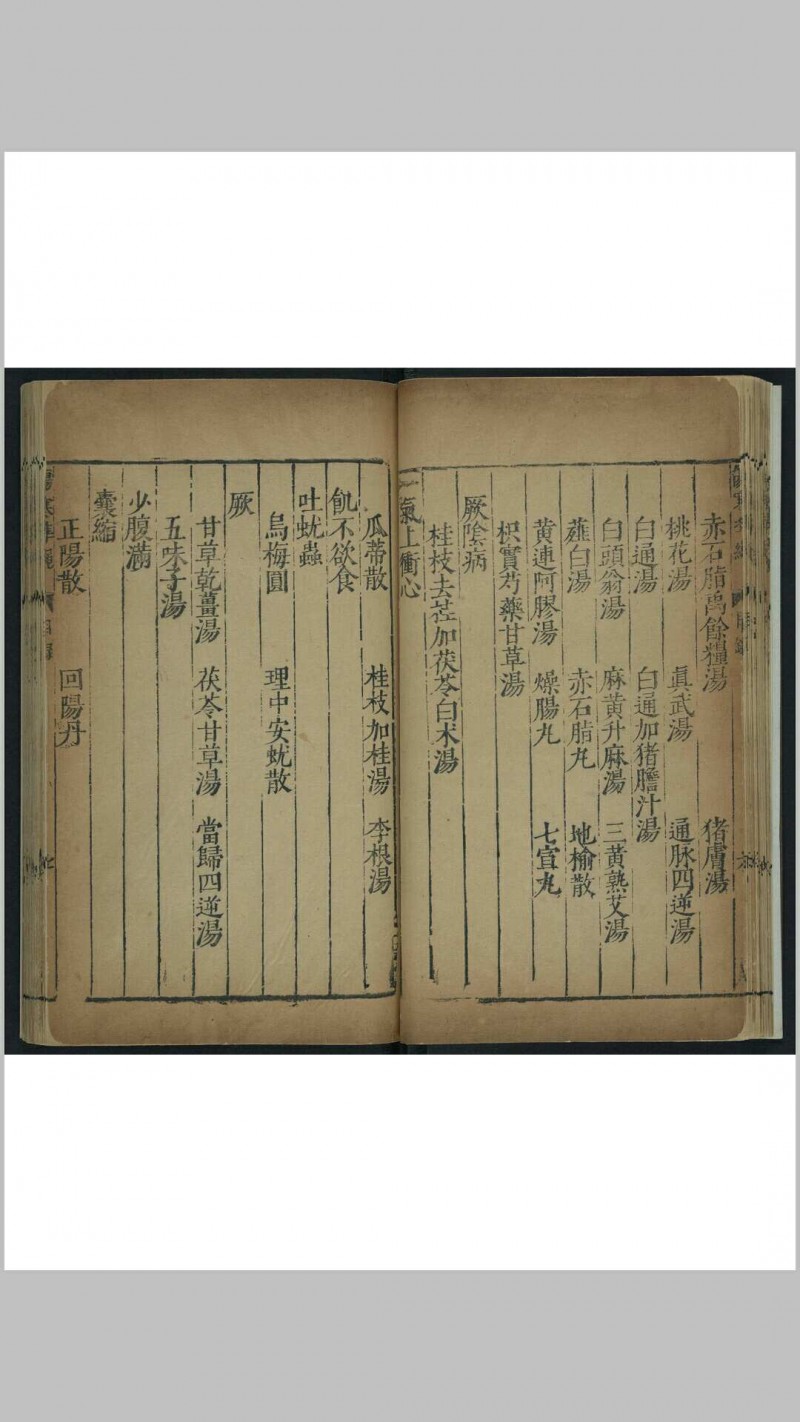 赤石脂禹餘糧湯 猪膚湯
桃花湯 眞武湯 通脉四逆湯
白通湯 白通加猪膽汁湯
白頭翁湯 麻黄升麻湯 三黄熟艾湯
薤白湯 赤石脂丸 地榆散
黄連阿膠湯 燥腸丸 七宣丸
枳實芍藥甘草湯
厥陰病
桂枝去芷加茯苓白术湯
氣上衝心
瓜蒂散 桂枝加桂湯 李根湯
飢不欲食
吐蚘蟲
烏梅圓 理中安蚘散
厥
甘草乾薑湯 茯苓甘草湯 當歸四逆湯
五味子湯
少腹滿
囊縮
正陽散 回陽丹